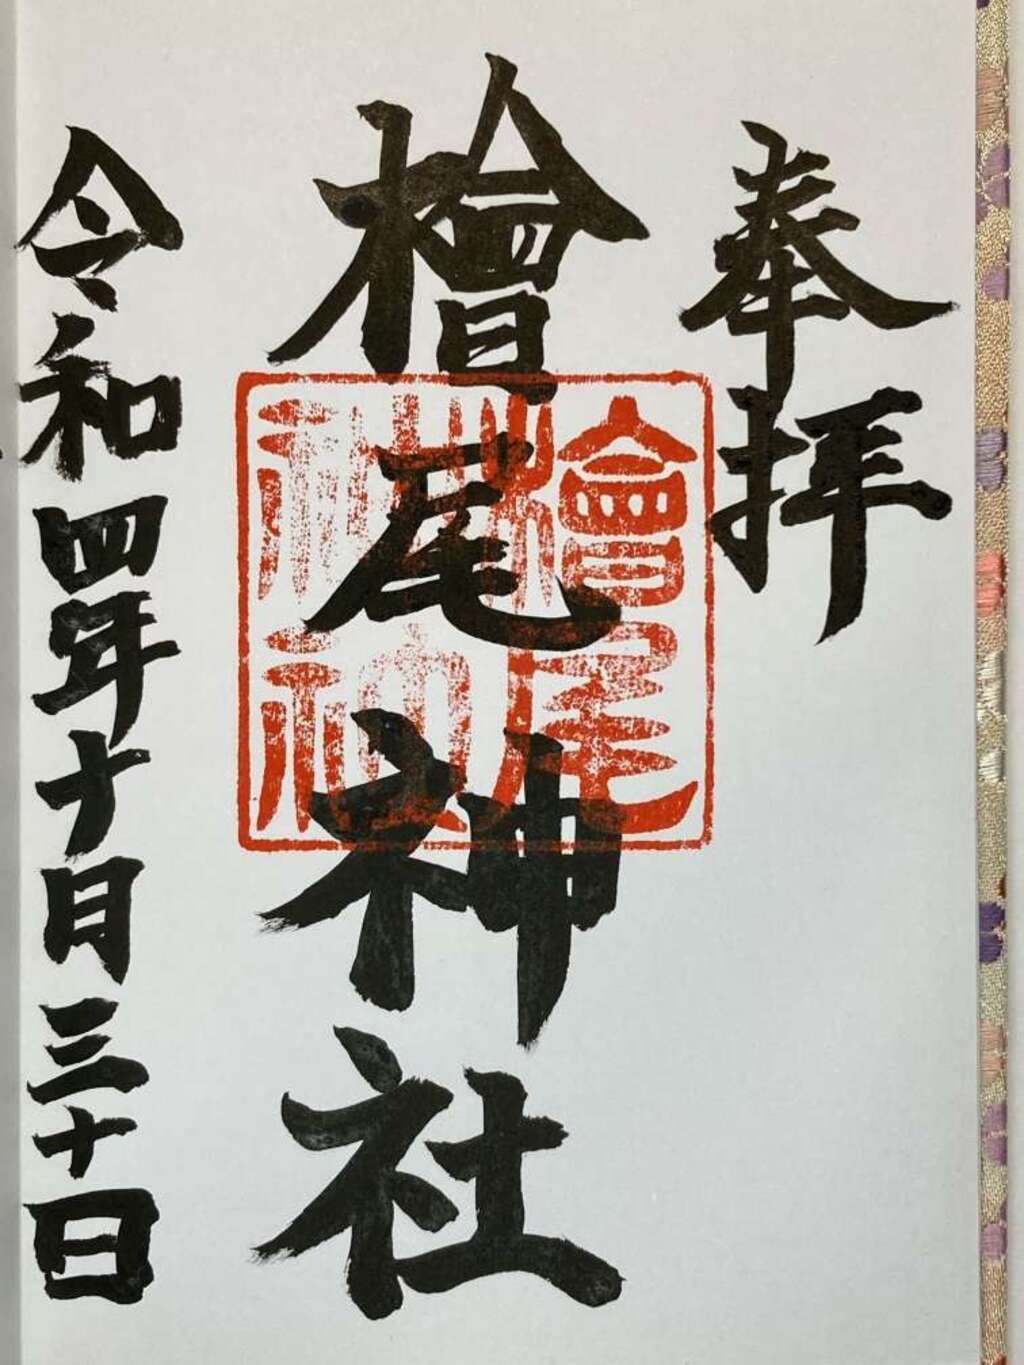 奉拝
檜尾神社
檜尾神社
令和四年十月三十日